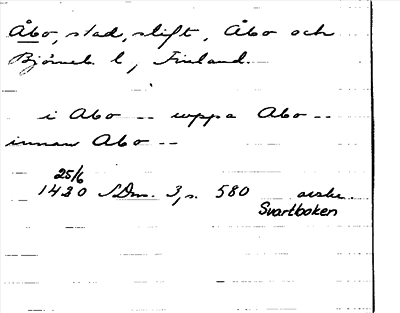 Åbo, stad, stift, Åbo och
Björneb. l, Finland.
i Abo -- uppa Abo --
innan Abo --
25/6
1430 SDns. 3, s. 580 avskr.
Svartboken